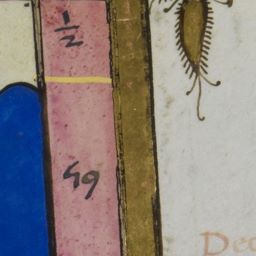 ½
49
Dec